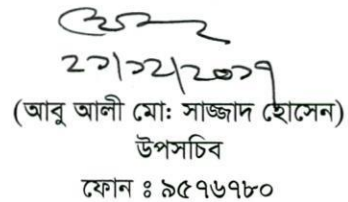 ২১/১২/২০১৭
(আবু আলী মো: সাজ্জাদ হোসেন)
উপসচিব
ফোন ঃ ৯৫৭৬৭৮০